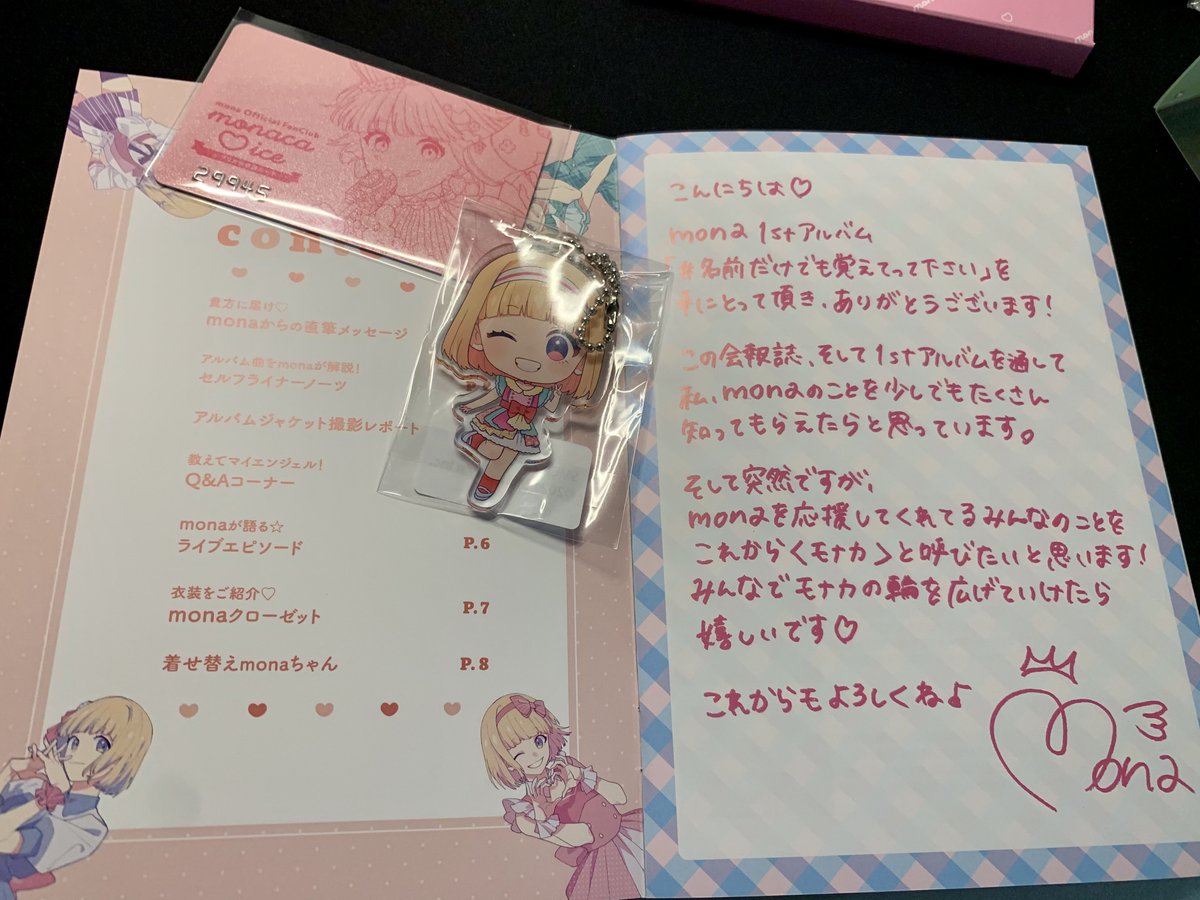 mona Official FanClub
monaca
ice
29945
貴方に届け♡
monaからの直筆メッセージ
アルバム曲をmonaが解説!
セルフライナーノーツ
アルバムジャケット撮影レポート
教えてマイエンジェル!
Q&Aコーナー
monaが語る☆
ライブエピソード
P.6
衣装をご紹介♡
monaクローゼット
P.7
着せ替えmonaちゃん
P.8
こんにちは♡
mona 1stアルバム
「#名前だけでも覚えてって下さい」を
手にとって頂き、ありがとうございます!
この会報誌、そして1stアルバムを通して
私、monaのことを少しでもたくさん
知ってもらえたらと思っています。
そして突然ですが、
monaを応援してくれてるみんなのことを
これから〈モナカ〉と呼びたいと思います!
みんなでモナカの輪を広げていけたら
嬉しいです♡
これからもよろしくねよ
mona